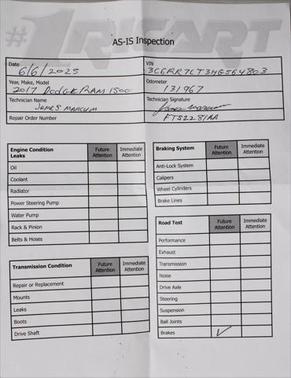 #1RISART
AS-IS Inspection
Date
6/6/2025
VIN
3C6RR7LT3HG564803
Year, Make, Model
2017 DODGE/RAM 1500
Odometer
131,967
Technician Name
Technician Signature
Repair Order Number
FTS2281AA
Engine Condition
Leaks
Future Attention
Immediate Attention
Oil
Coolant
Radiator
Power Steering Pump
Water Pump
Rack & Pinion
Belts & Hoses
Transmission Condition
Future Attention
Immediate Attention
Repair or Replacement
Mounts
Leaks
Boots
Drive Shaft
Braking System
Future Attention
Immediate Attention
Anti-Lock System
Calipers
Wheel Cylinders
Brake Lines
Road Test
Future Attention
Immediate Attention
Performance
Exhaust
Transmission
Noise
Drive Axle
Steering
Suspension
Ball Joints
Brakes ✓